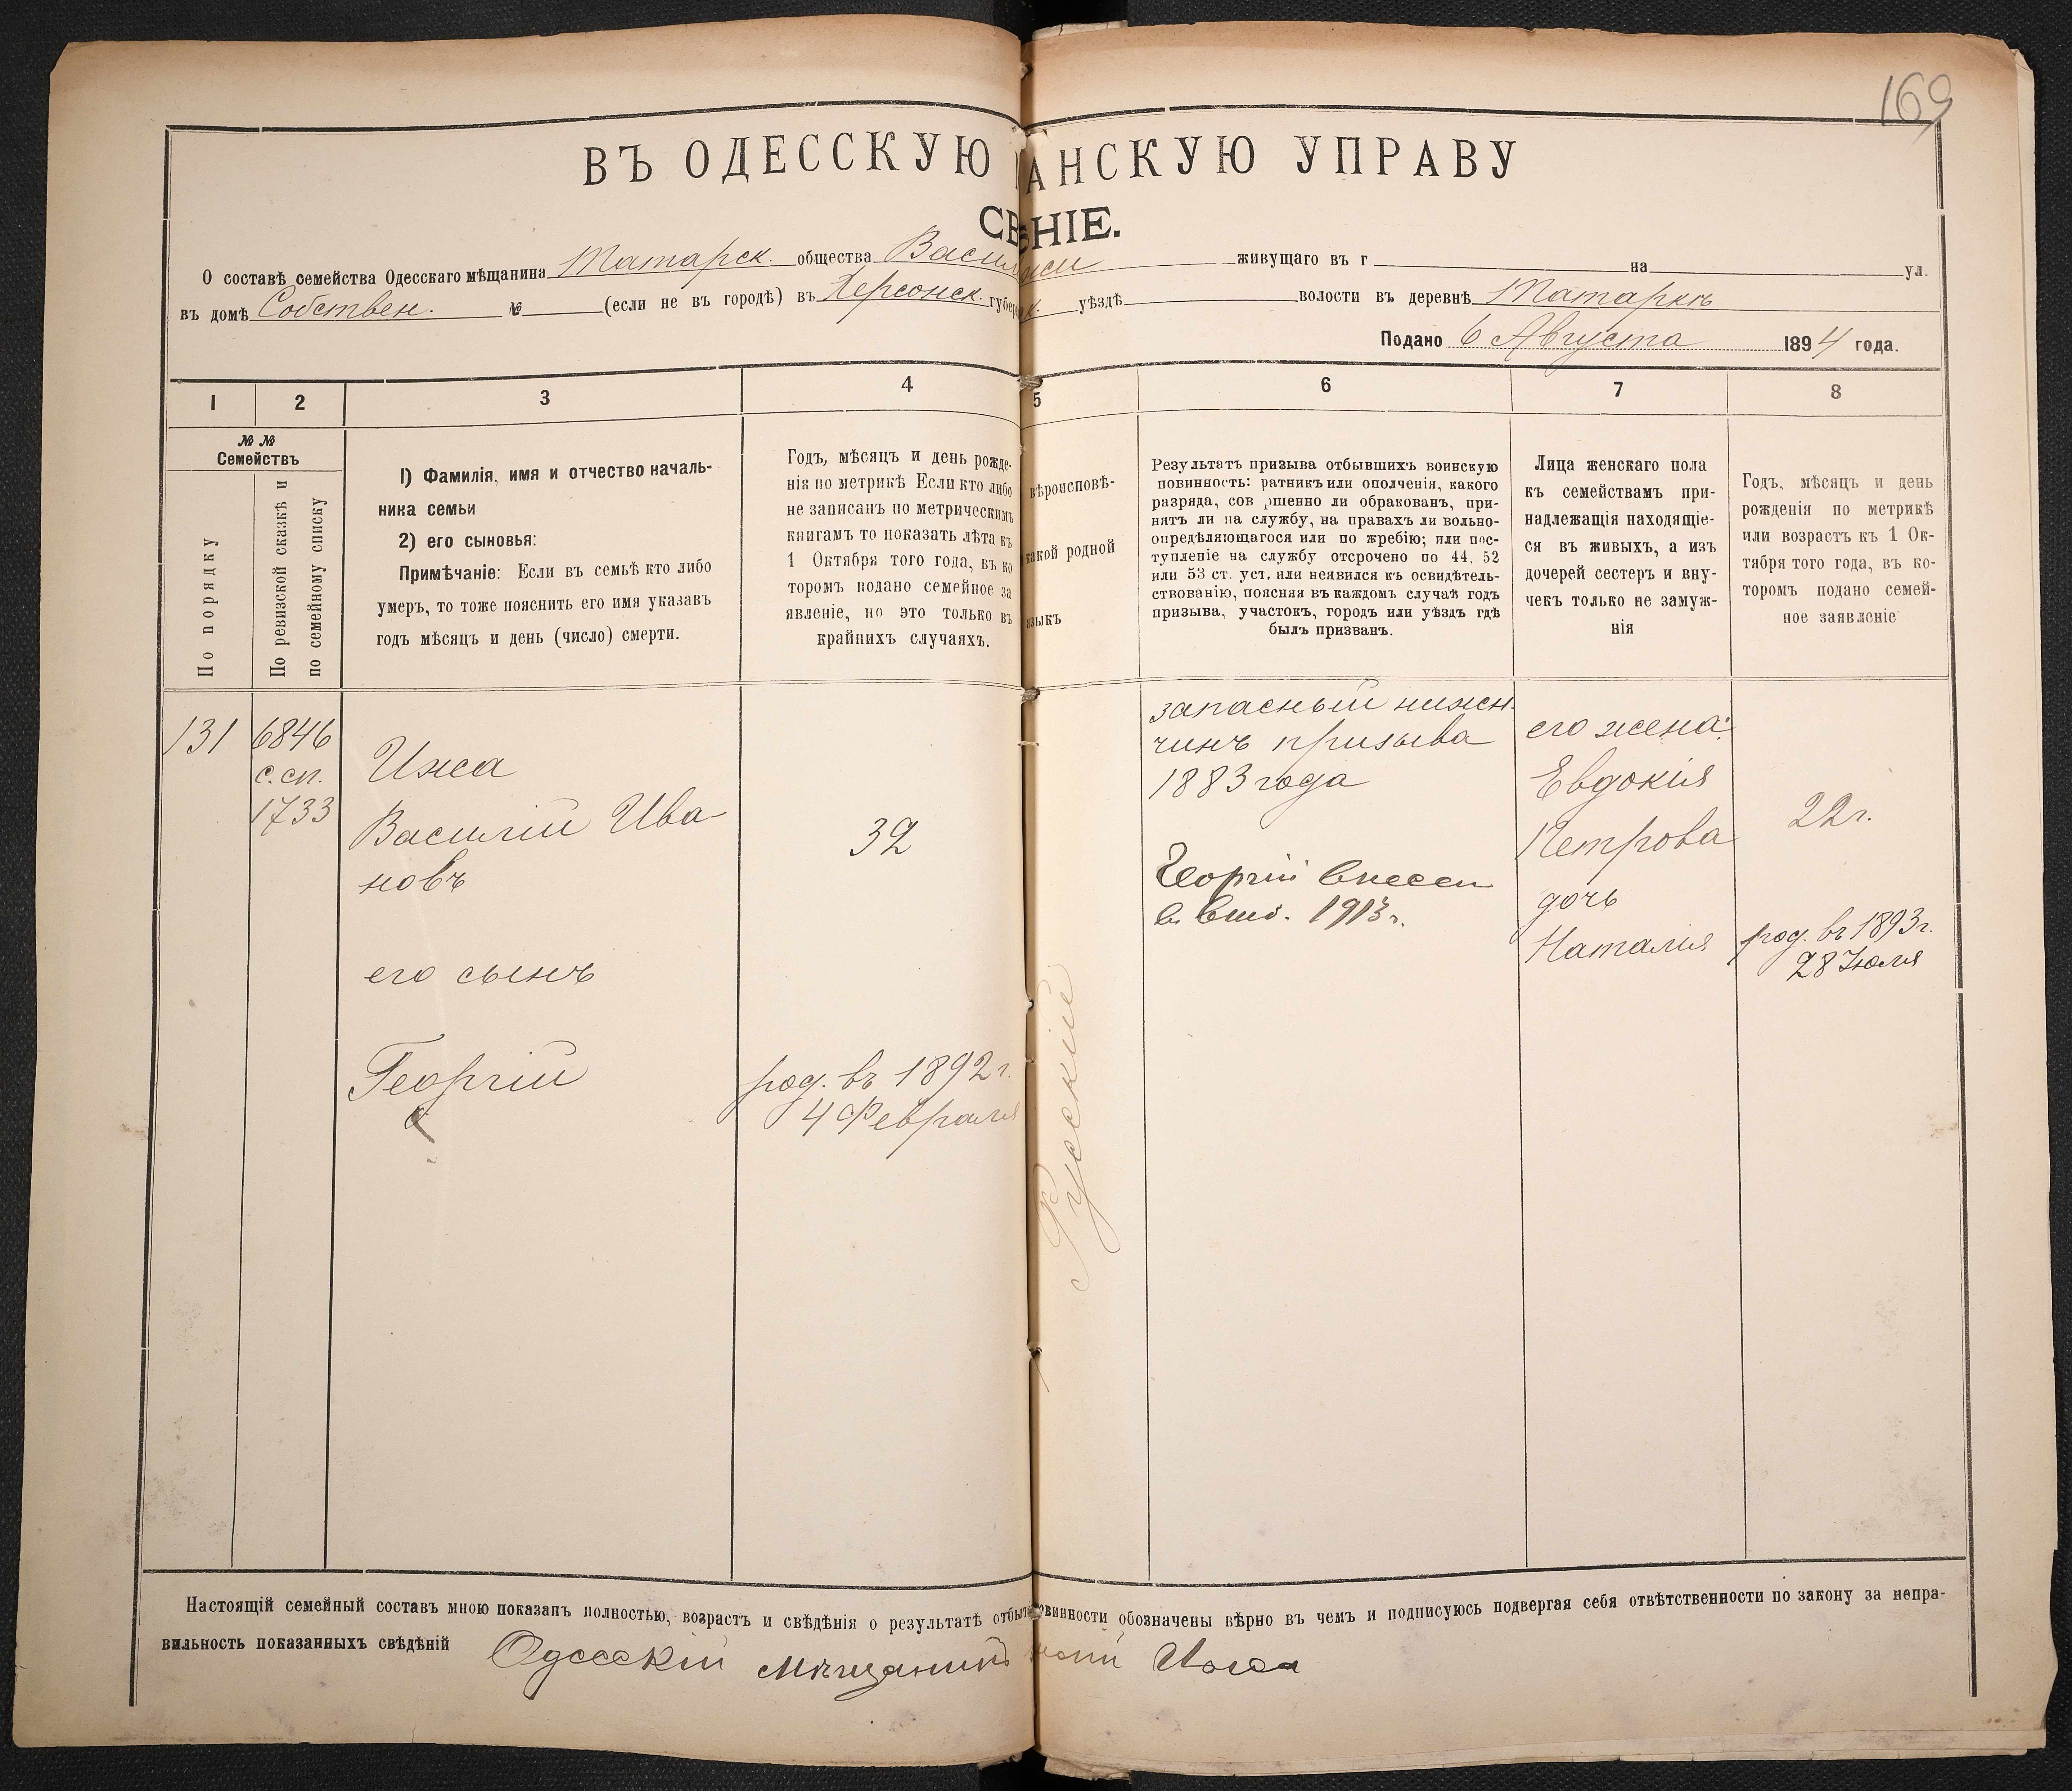 169
ВЪ ОДЕССКУЮ АНСКУЮ УПРАВУ
СВ НІЕ.
О составѣ семейства Одесскаго мѣщанина Татарск. общества Васил живущаго въ г на ул.
въ домѣ Собствен. № (если не въ городѣ) въ Херсонск. губер уѣздѣ волости въ деревнѣ Татаркѣ
Подано 6 Августа 1894 года.
1 2 3 4 5 6 7 8
№ №
Семействъ
По порядку
По ревизской сказкѣ и
по семейному списку
1) Фамилія, имя и отчество началь-
ника семьи
2) его сыновья:
Примѣчаніе: Если въ семьѣ кто либо
умеръ, то тоже пояснить его имя указавъ
годъ мѣсяцъ и день (число) смерти.
Годъ, мѣсяцъ и день рожде-
нія по метрикѣ Если кто либо
не записанъ по метрическимъ
книгамъ то показать лѣта къ
1 Октября того года, въ ко
торомъ подано семейное за
явленіе, но это только въ
крайнихъ случаяхъ.
вѣроисповѣ-
какой родной
языкъ
Результатъ призыва отбывшихъ воинскую
повинность: ратникъ или ополченія, какого
разряда, сов ршенно ли обракованъ, при-
нятъ ли на службу, на правахъ ли вольно-
опредѣляющагося или по жребію; или пос-
тупленіе на службу отсрочено по 44, 52
или 53 ст. уст. или неявился къ освидѣтель-
ствованію, поясняя въ каждомъ случаѣ годъ
призыва, участокъ, городъ или уѣздъ гдѣ
былъ призванъ.
Лица женскаго пола
къ семействамъ при-
надлежащія находящіе-
ся въ живыхъ, а изъ
дочерей сестеръ и вну-
чекъ только не замуж-
нія
Годъ, мѣсяцъ и день
рожденія по метрикѣ
или возрастъ къ 1 Ок-
тября того года, въ ко-
торомъ подано семей-
ное заявленіе
131
6846
с. сп.
1733
Ижа
Василій Ива-
новъ
его сынъ
Георгій
32
род. въ 1892 г.
4 Февраля
Русскій
запасный нижн.
чинъ призыва
1883 года
Георгій внесен
в 1913 г.
его жена:
Евдокія
Петрова
дочь
Наталия
22 г.
род. въ 1893 г.
28 Июля
Настоящій семейный составъ мною показанъ полностью, возрастъ и свѣдѣнія о результатѣ отбыт овинности обозначены вѣрно въ чемъ и подписуюсь подвергая себя отвѣтственности по закону за непра-
вильность показанныхъ свѣдѣній Одесскій мѣщанинъ